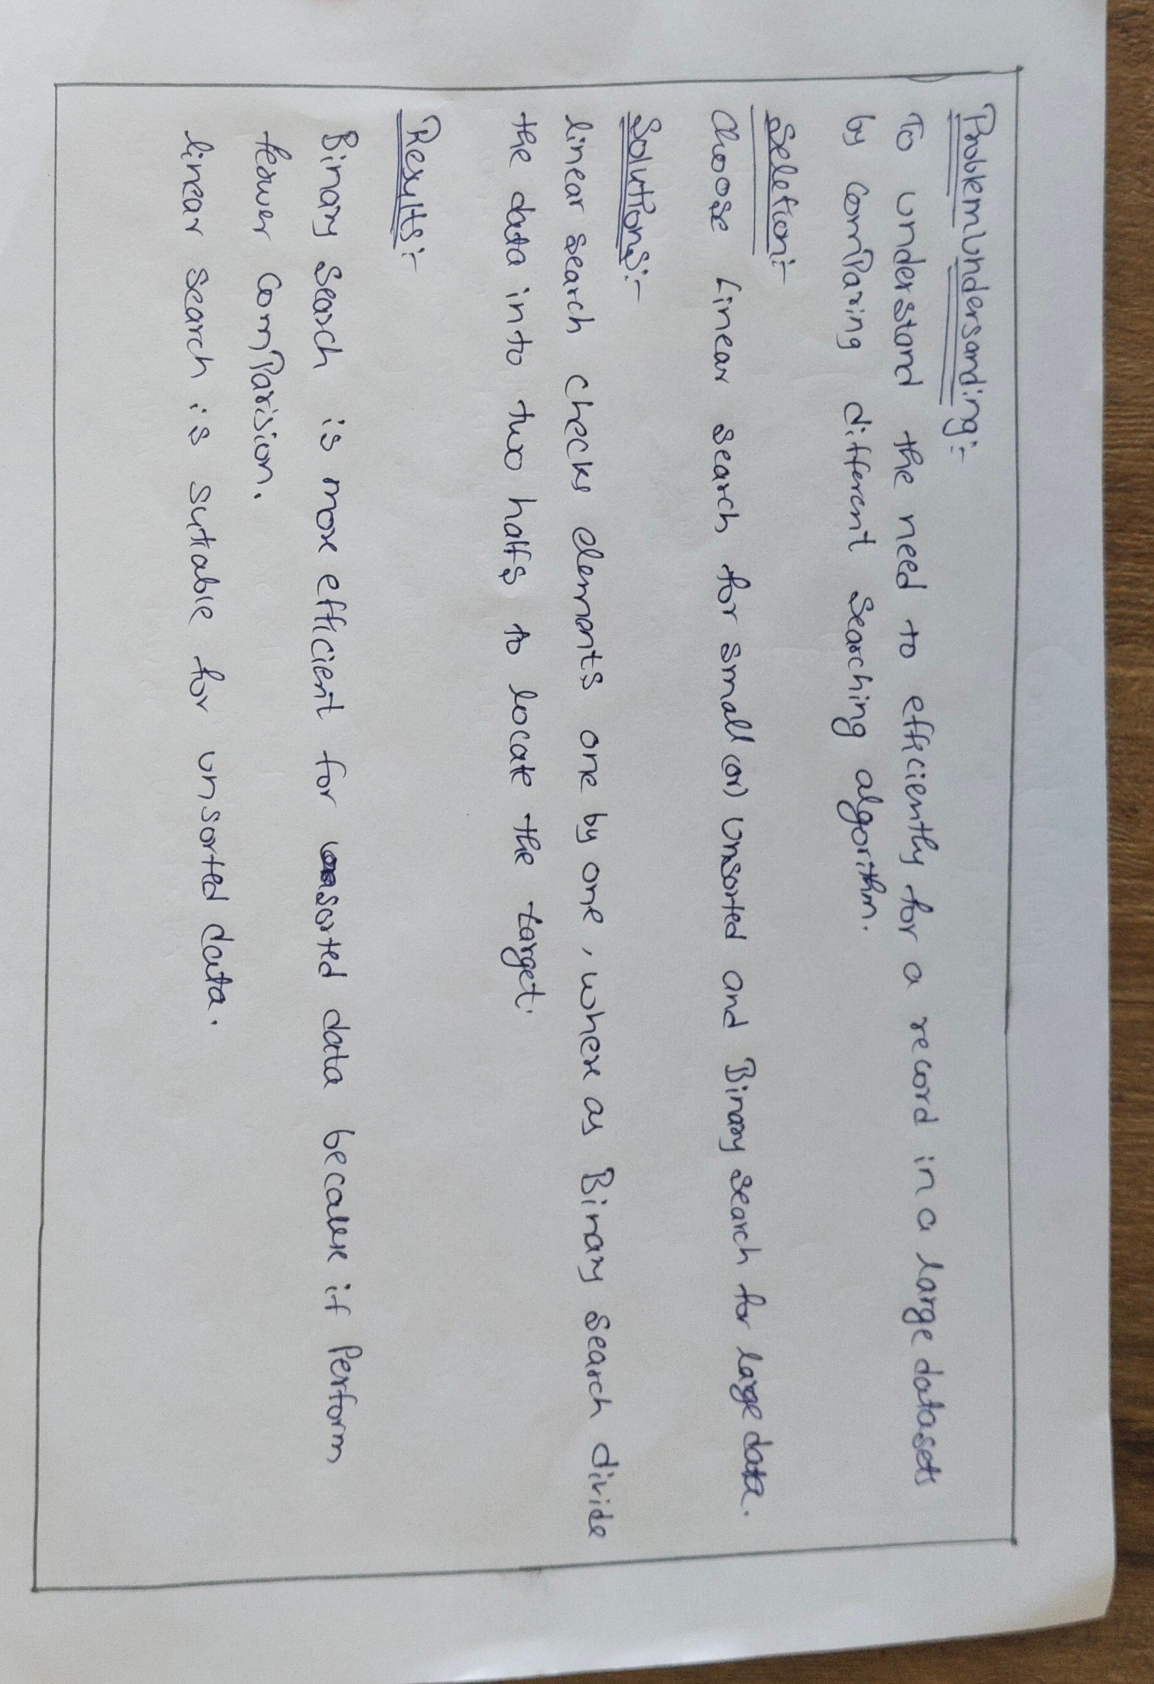 ProblemUndersanding:-
To understand the need to efficiently for a record in a large datasets
by comParing different Searching algorithm.
Seletion:-
Choose Linear search for small (or) Unsorted and Binary search for large data.
Solutions:-
linear search checks elements one by one, where as Binary search divide
the data into two halfs to locate the target.
Results:-
Binary Search is more efficient for sorted data because it Perform
fewer ComParision.
linear search is sutiable for unsorted data.